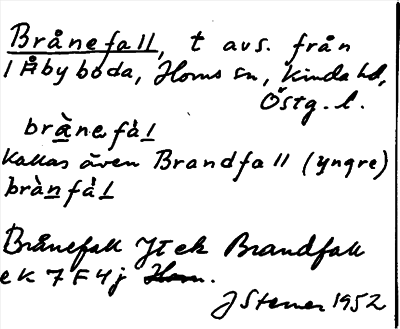 Brånefall, t avs. från
1 Åbyboda, Horns sn, Kinda hd,
Östg. l.
brånefàl
Kallas även Brandfall (yngre)
brànfàl
Brånefall Jt ek Brandfall
ek 7 F 4j Horn.
J Stener 1952